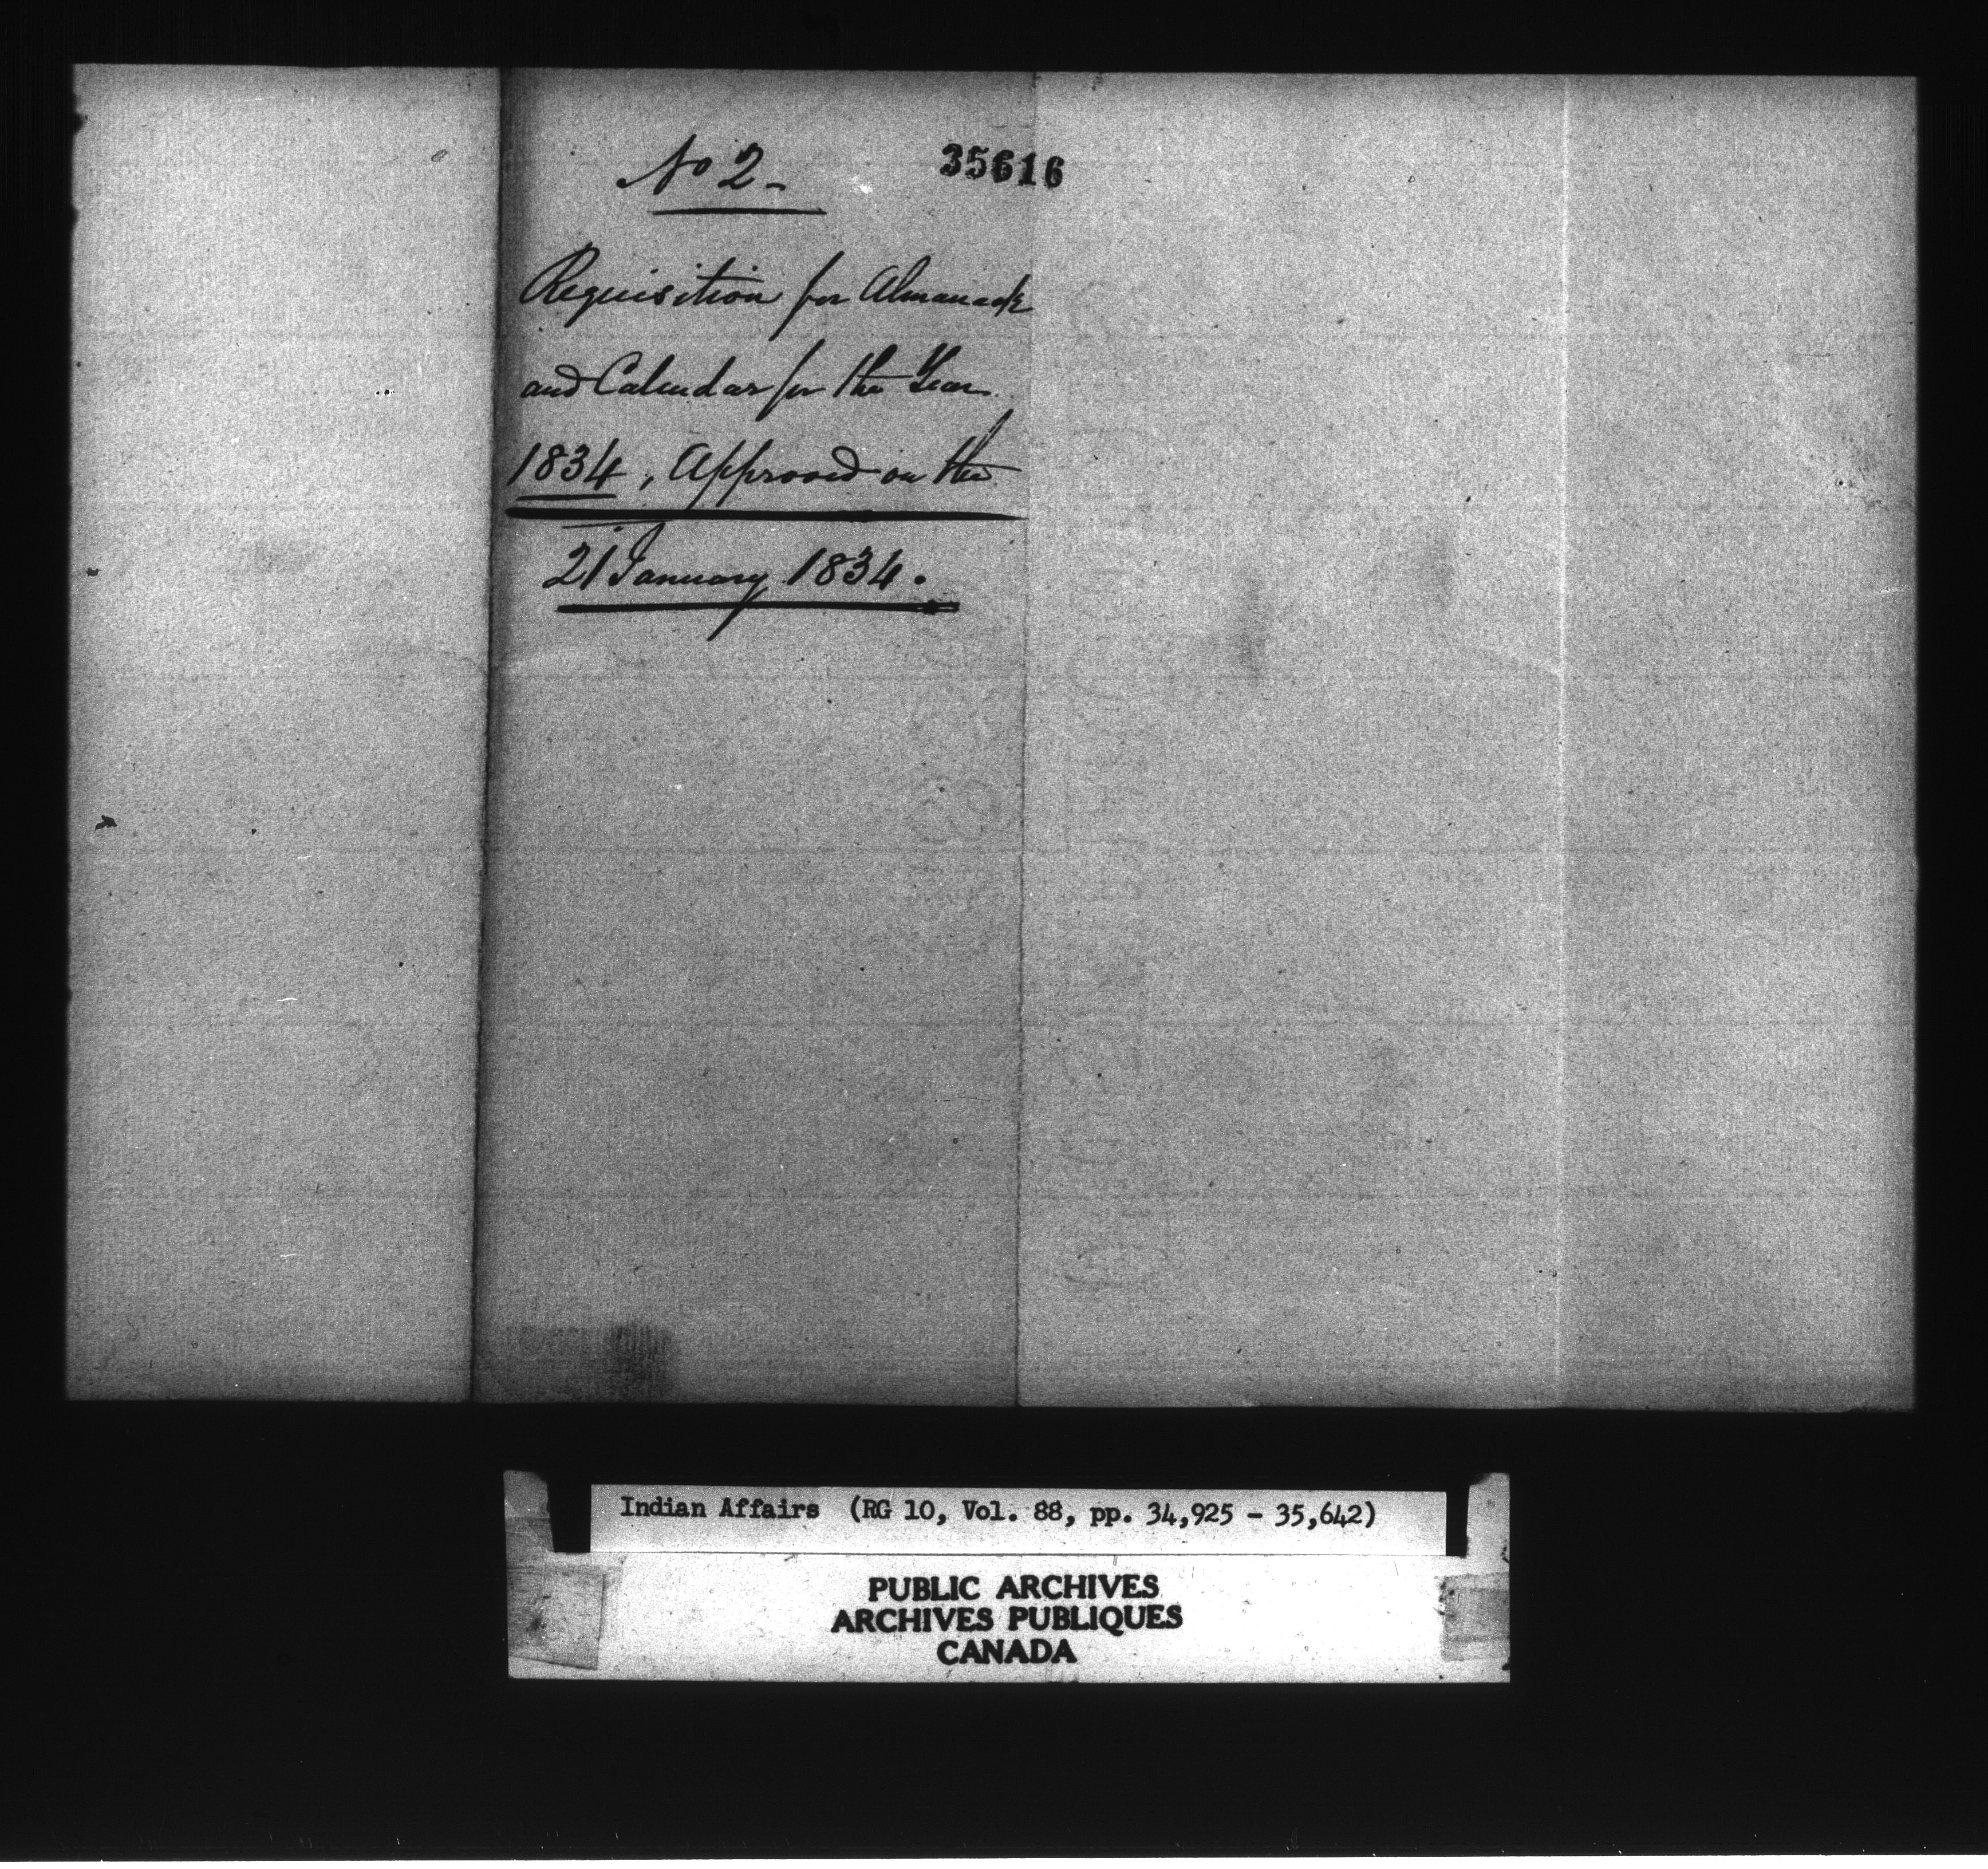 No 2-
35616
Requisition for Almanack
and Calendar for the Year
1834, Approved on the
21 January 1834.
Indian Affairs (RG 10, Vol. 88, pp. 34,925 - 35,642)
PUBLIC ARCHIVES
ARCHIVES PUBLIQUES
CANADA